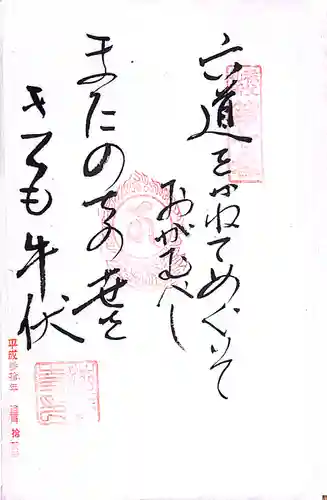 六道をかねてめぐりて
おがむべし
またのちの世を
きくも牛伏
平成参拾年